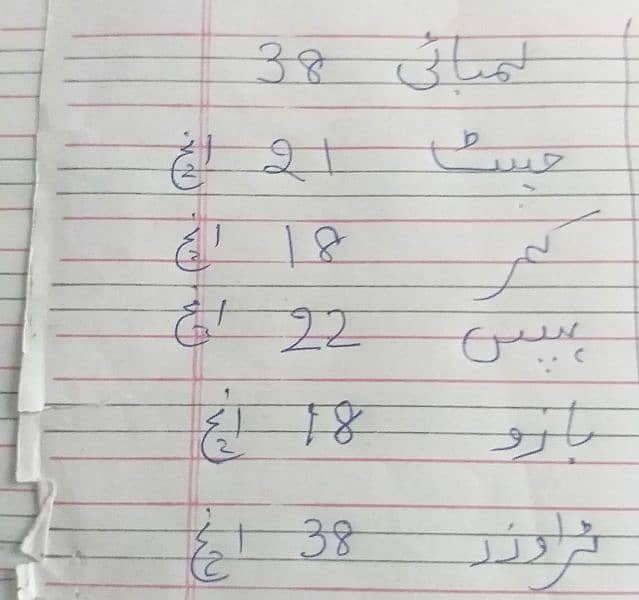 لمبائی 38
چیسٹ 21 انچ
کمر 18 انچ
ہپس 22 انچ
بازو 18 انچ
ٹراوزر 38 انچ